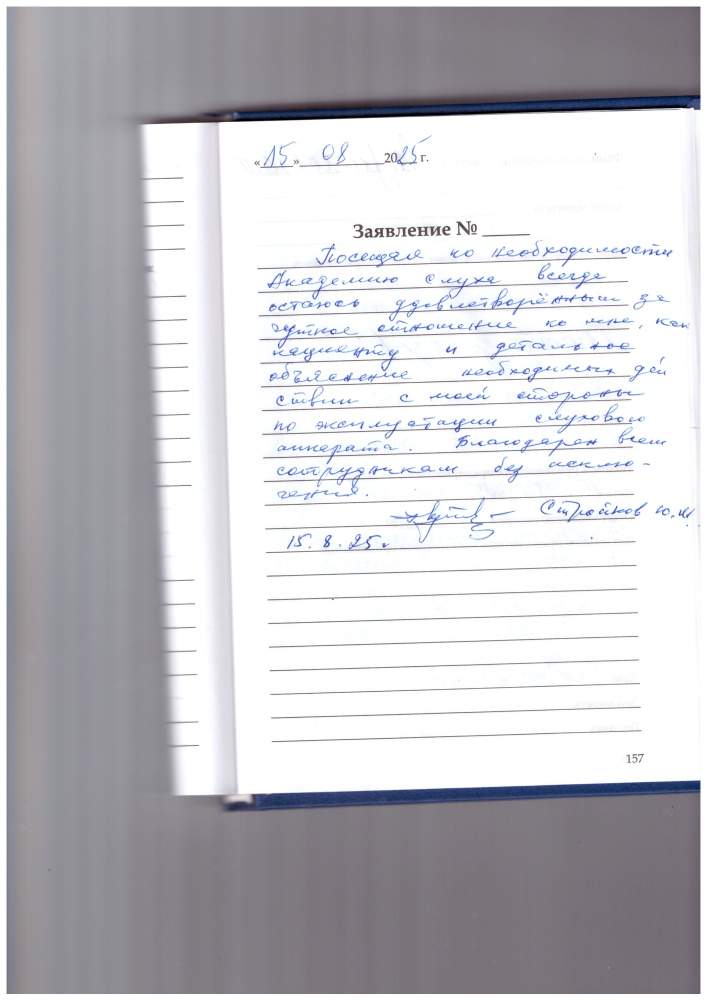 «15» 08 2025 г.
Заявление № ____
Посещая по необходимости
Академию слуха всегда
остаюсь удовлетворённым за
чуткое отношение ко мне, как
пациенту и детальное
объяснение необходимых дей
ствии с моей стороны
по эксплуатации слухового
аппарата. Благодарен всем
сотрудникам без исклю-
чения.
Стройков Ю.М.
15.8.25г
157